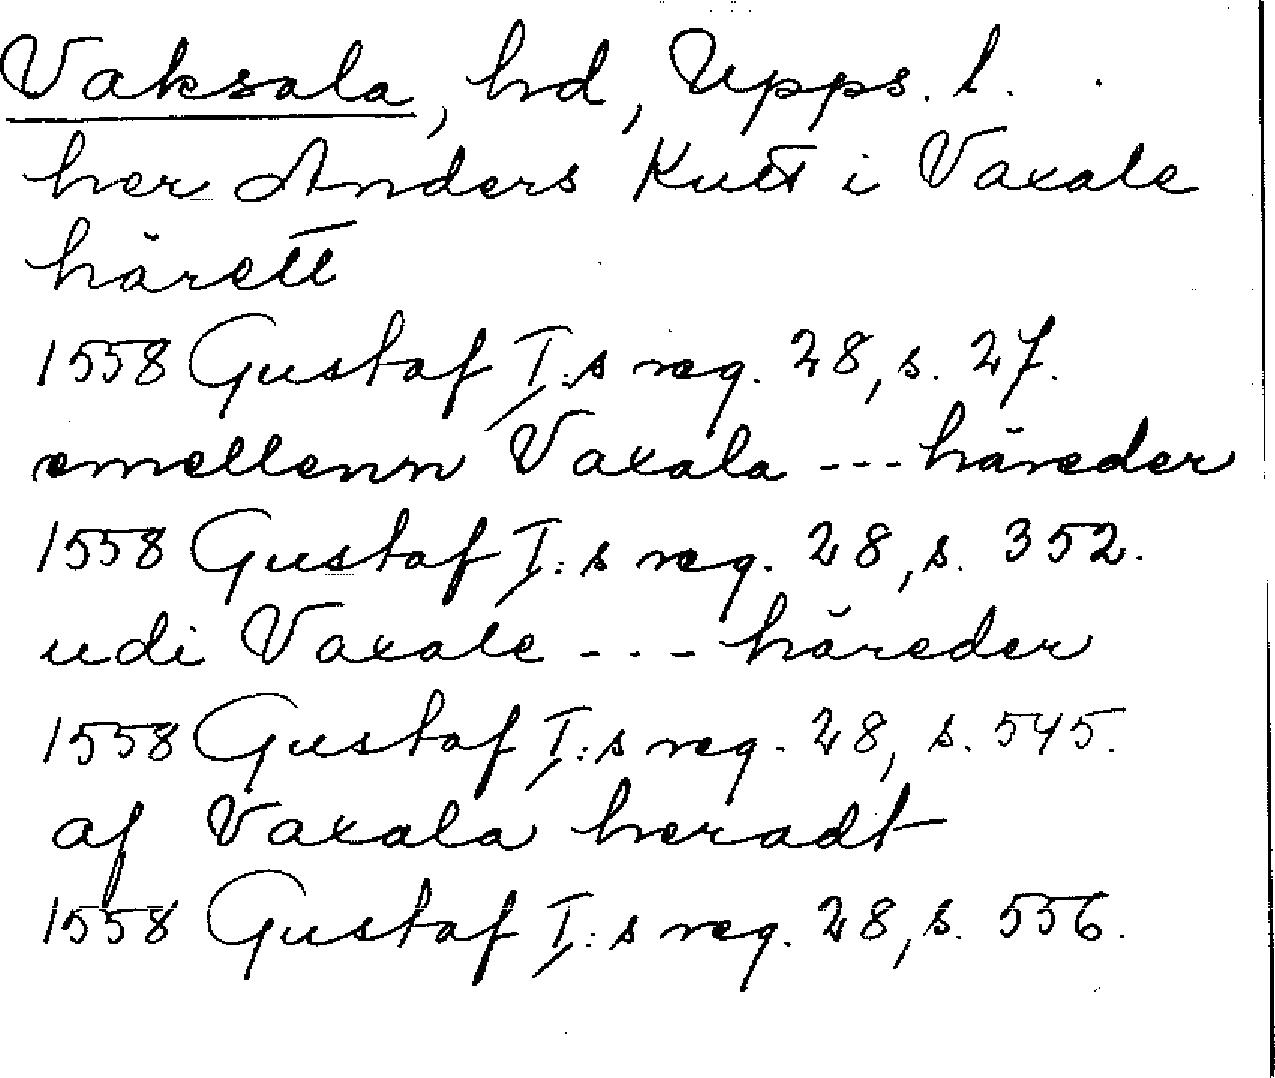 Vaksala, hd, Upps. l.
her Anders Kutt i Vaxale
härett
1558 Gustaf I:s reg. 28, s. 27.
emellenn Vaxala --- häreder
1558 Gustaf I:s reg. 28, s. 352.
udi Vaxale --- häreder
1558 Gustaf I:s reg. 28, s. 545.
af Vaxala heradt
1558 Gustaf I:s reg. 28, s. 556.